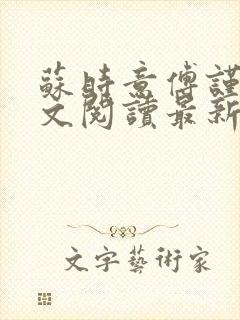 蘇時意傅謹
文閱讀最新
文字藝術家